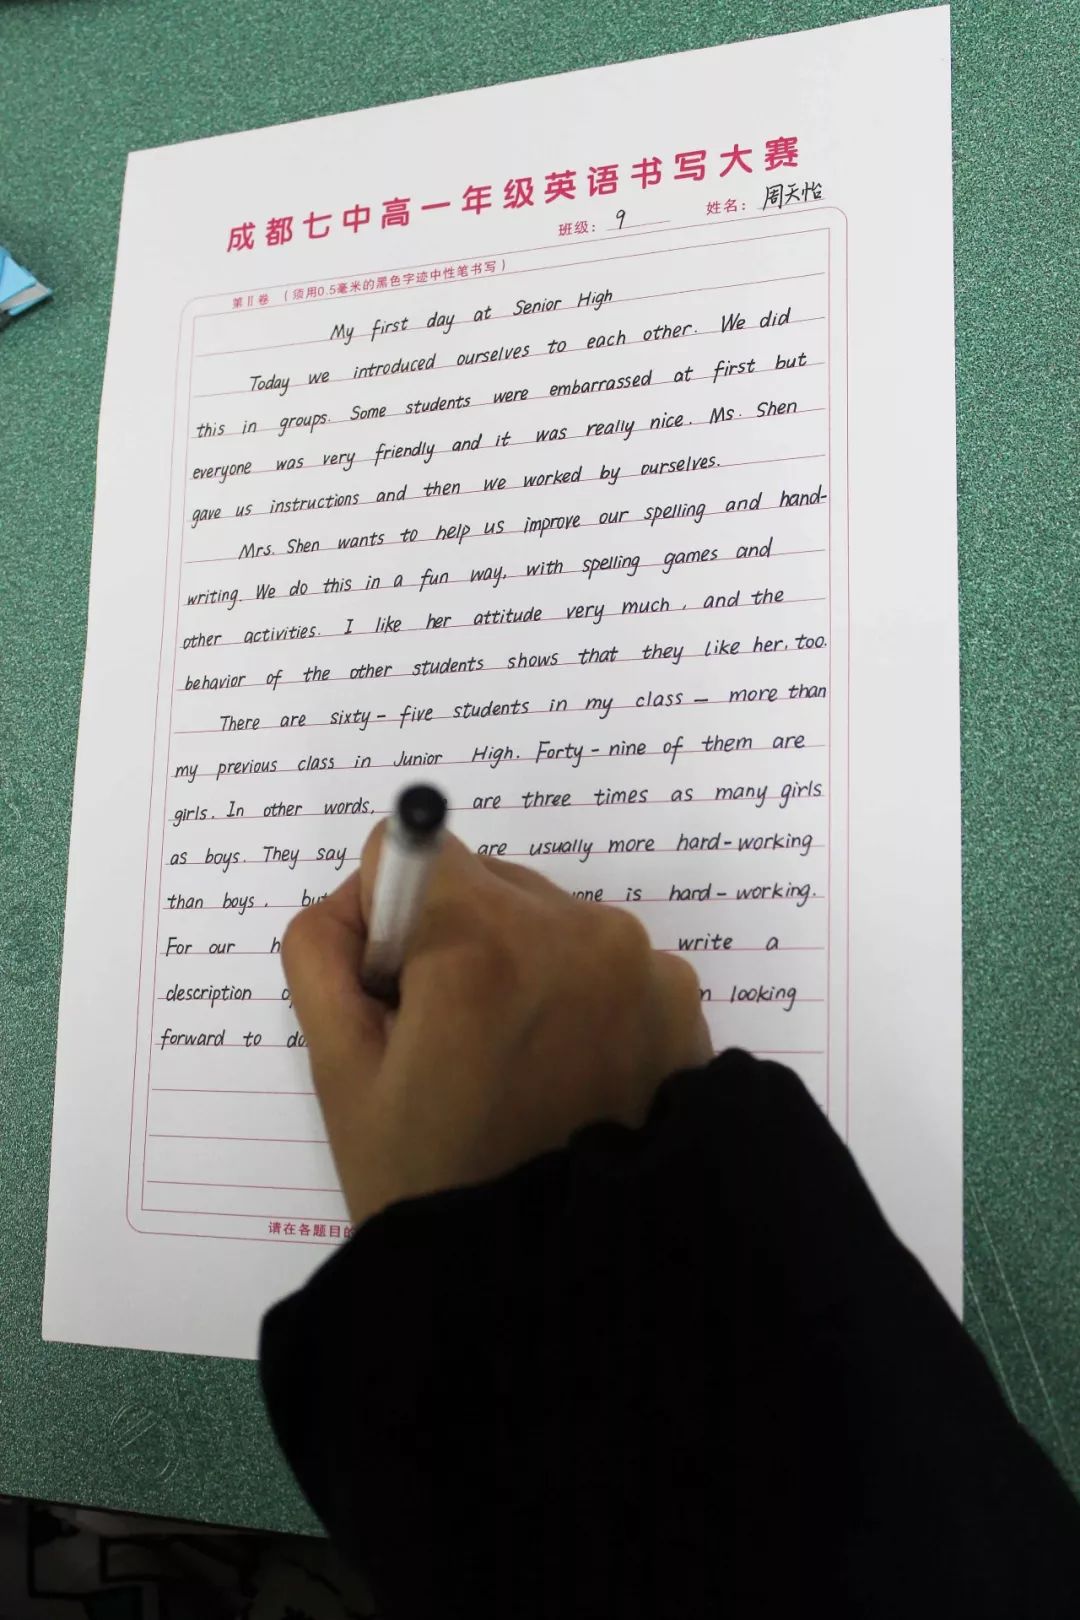 成都七中高一年级英语书写大赛
班级: 9 姓名: 周天怡
第Ⅱ卷 (须用0.5毫米的黑色字迹中性笔书写)
My first day at Senior High
Today we introduced ourselves to each other. We did
this in groups. Some students were embarrassed at first but
everyone was very friendly and it was really nice. Ms. Shen
gave us instructions and then we worked by ourselves.
Mrs. Shen wants to help us improve our spelling and hand-
writing. We do this in a fun way, with spelling games and
other activities. I like her attitude very much, and the
behavior of the other students shows that they like her, too.
There are sixty-five students in my class — more than
my previous class in Junior High. Forty-nine of them are
girls. In other words, are three times as many girls
as boys. They say are usually more hard-working
than boys, is hard-working.
For our write a
description looking
forward to
请在各题目的